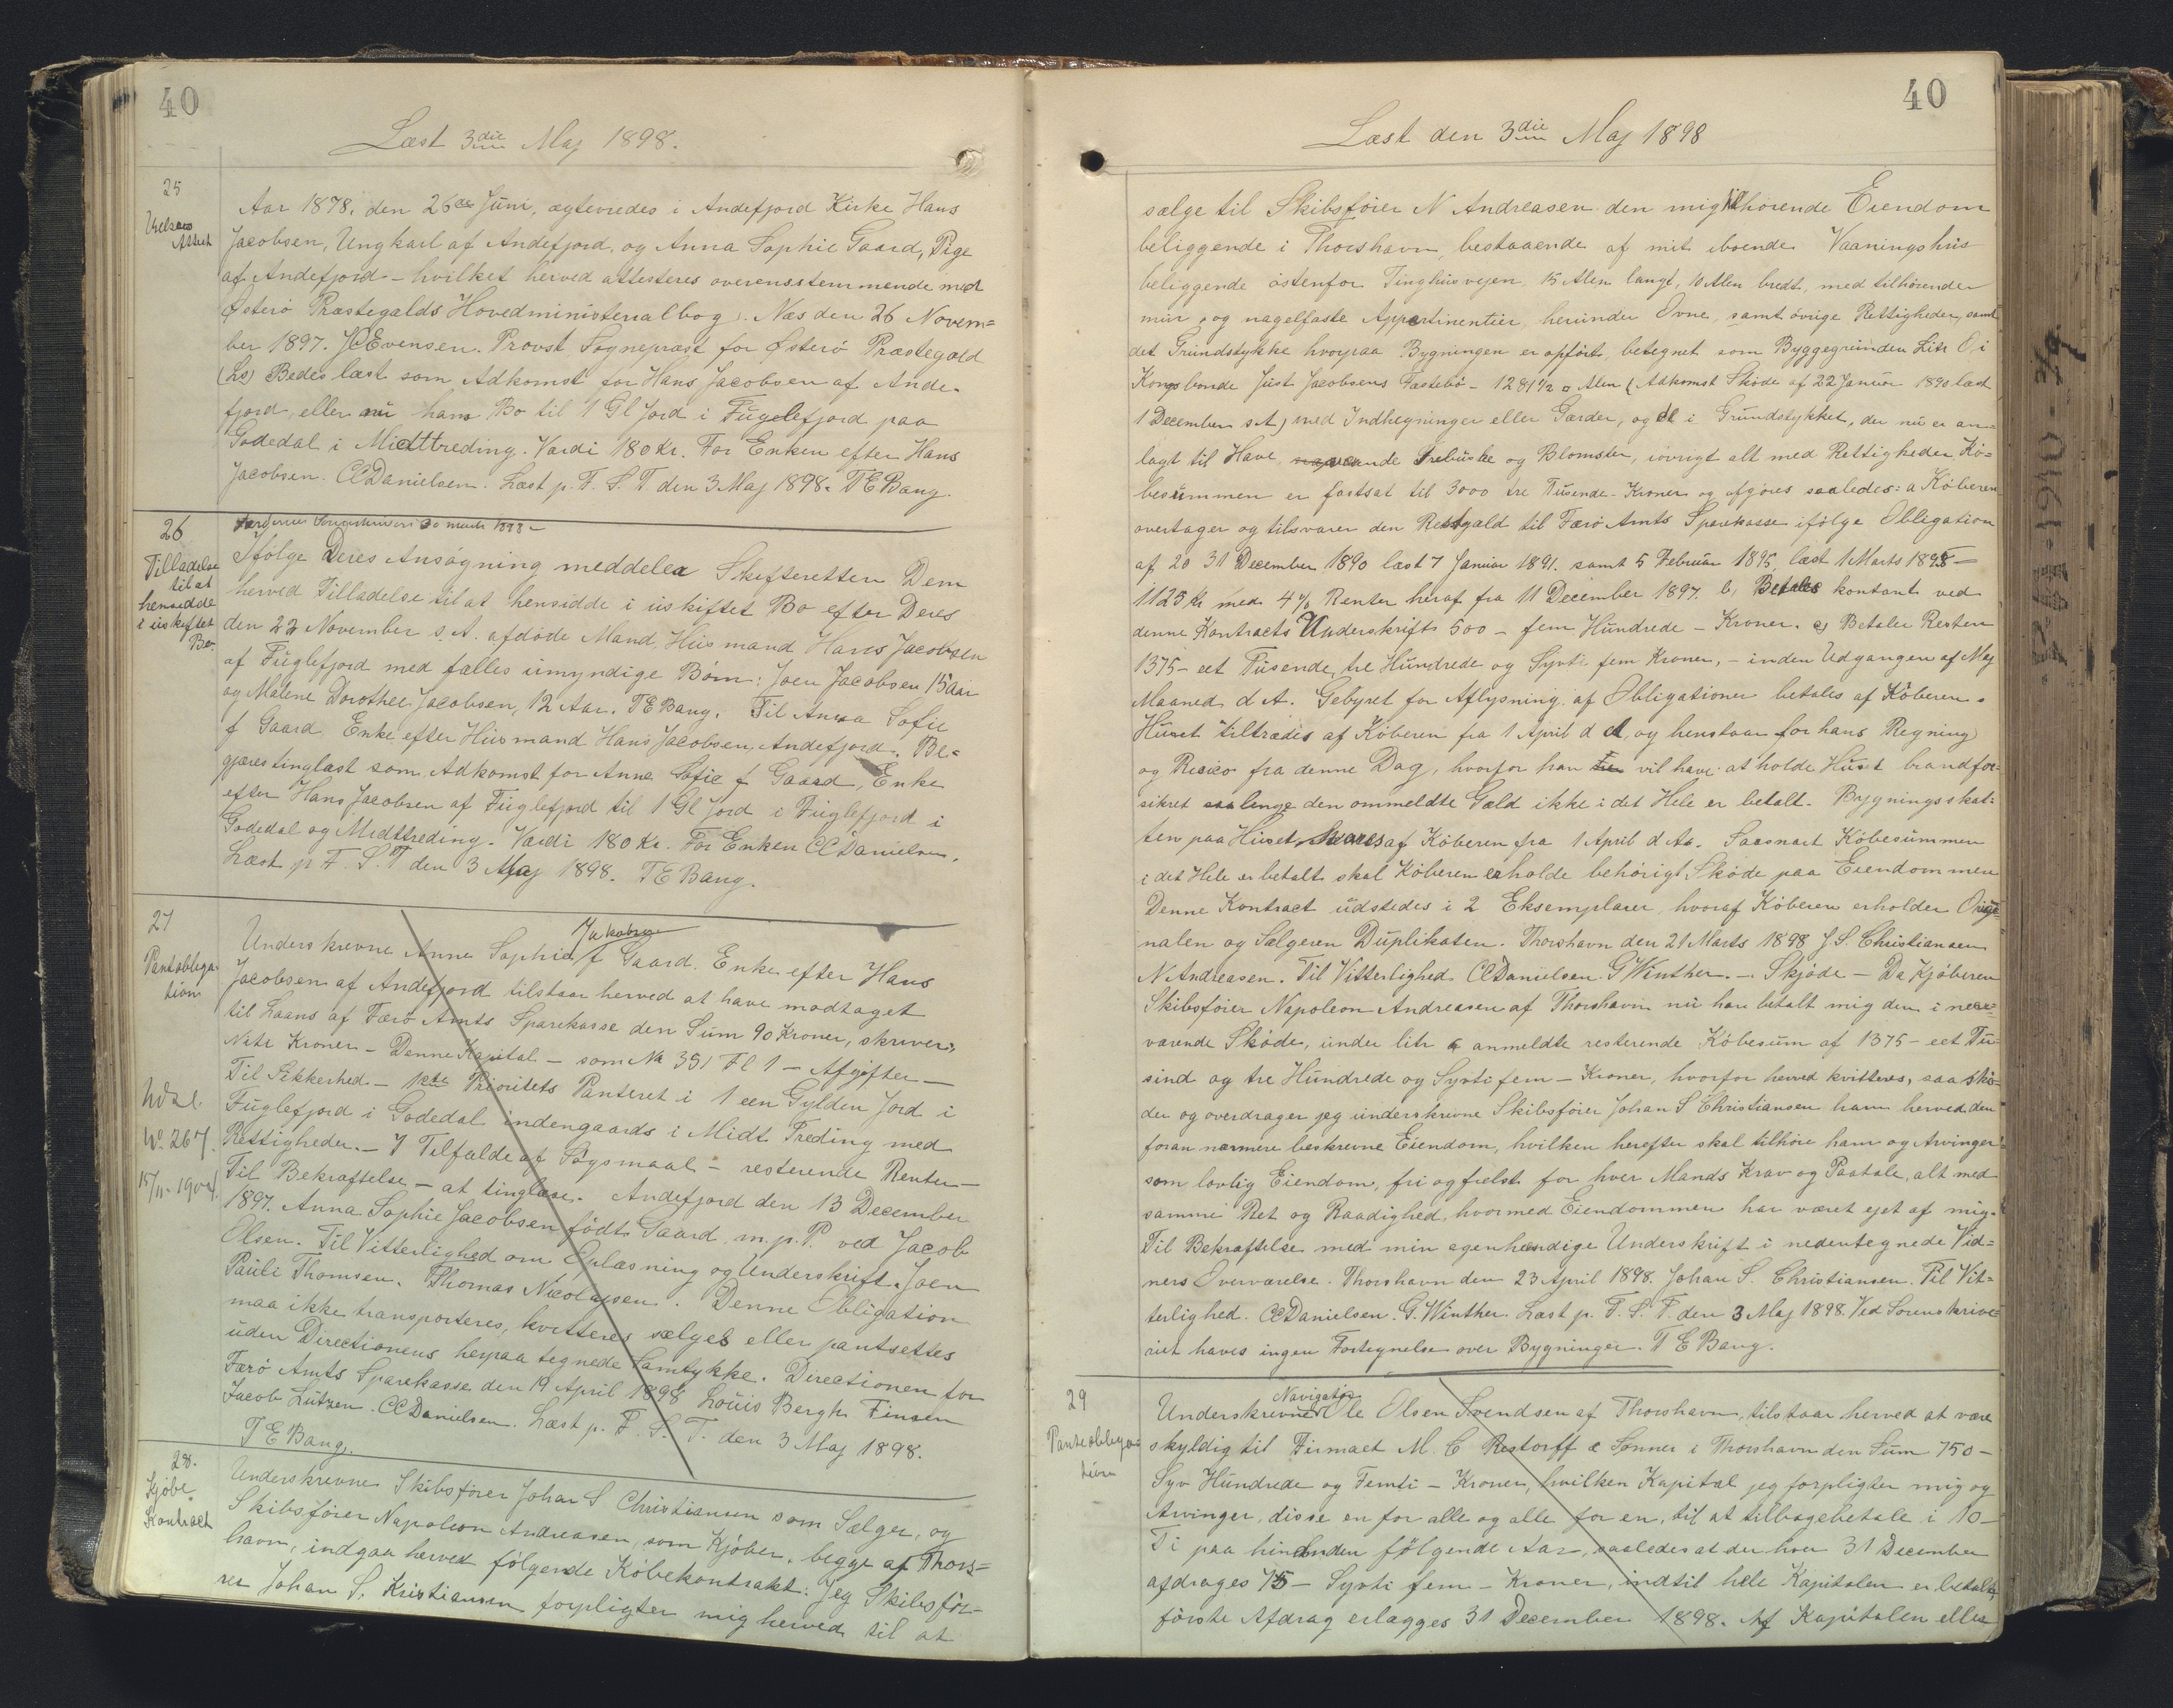 40
Læst 3die Maj 1898.
25
Vielses
Attest
Aar 1878, den 26de Juni, ægteviedes i Andefjord Kirke Hans
Jacobsen, Ungkarl af Andefjord, og Anna Sophie Gaard, Pige
af Andefjord – hvilket herved attesteres overensstemmende med
Østerö Præstegalds Hovedministerialbog. Næs den 26 Novem=
ber 1897. JCEvensen. Provst Sognepræst for Østerö Præstegæld
(Ls) Bedes læst som Adkomst for Hans Jacobsen af Ande-
fjord, eller nu hans Bo til 1 Gl Jord i Fuglefjord paa
Godedal i Midttreding. Værdi 180 Kr. For Enken efter Hans
Jacobsen. CCDanielsen. Læst p. F. S. T den 3 Maj 1898. TEBang.
26
Tilladelse
til at
hensidde
i uskiftet
Bo.
Færöernes Sorenskriveri 30 marts 1898 –
Ifölge Deres Ansögning meddeles Skifteretten Dem
herved Tilladelse til at hensidde i uskiftet Bo efter Deres
den 22 November s. A. afdöde Mand, Husmand Hans Jacobsen
af Fuglefjord med fælles umyndige Börn: Joen Jacobsen 15 Aar
og Malene Dorothea Jacobsen, 12 Aar. TEBang. Til Anna Sofie
f Gaard Enke efter Husmand Hans Jacobsen, Andefjord. Be-
gjæres tinglæst som Adkomst for Anna Sofie f Gaard, Enke
efter Hans Jacobsen af Fuglefjord til 1 Gl Jord i Fuglefjord i
Godedal og Midttreding. Værdi 180 Kr. For Enken CCDanielsen.
Læst p F. S. T den 3 Maj 1898. TEBang.
27
Pantobliga-
tion
Jakobsen
Underskrevne Anna Sophie f Gaard. Enke efter Hans
Jacobsen af Andefjord tilstaar herved at have modtaget
til Laans af Færö Amts Sparekasse den Sum 90 Kroner, skriver,
Niti Kroner – Denne Kapital – som No 351 Fl 1 – Afgifter –
Til Sikkerhed – 1ste Prioritets Panteret i 1 een Gylden Jord i
Fuglefjord i Godedal indengaards i Midt Treding med
Rettigheder. – I Tilfælde af Sögsmaal – resterende Renter –
Til Bekræftelse – at tinglæse. Andefjord den 13 December
1897. Anna Sophie Jacobsen födt Gaard, m. p. P. ved Jacob
Olsen. Til Vitterlighed om Oplæsning og Underskrift. Joen
Pauli Thomsen. Thomas Nicolajsen. Denne Obligation
maa ikke transporteres, kvitteres sælges eller pantsættes
uden Directionens herpaa tegnede Samtykke. Directionen for
Færö Amts Sparekasse den 19 April 1898 Louis Bergh Finsen
Jacob Lützen. CCDanielsen. Læst p. F. S. T. den 3 Maj 1898.
TEBang.
Udsl.
No. 267.
15/11 1904.
28.
Kjöbe
Kontract
Underskrevne Skibsförer Johan S Christiansen som Sælger, og
Skibsförer Napoleon Andreasen, som Kjöber, begge af Thors=
havn, indgaa herved fölgende Köbekontrakt: Jeg Skibsför-
rer Johan S. Kristiansen forpligter mig herved til at
40
Læst den 3die Maj 1898
sælge til Skibsförer N Andreasen den mig tilhörende Eiendom
beliggende i Thorshavn, bestaaende af mit iboende Vaaningshus
beliggende östenfor Tinghusvejen 15 Alen langt, 10 Alen bredt, med tilhörende
mur og nagelfaste Appertinentier, herunder Ovne, samt övrige Rettigheder, samt
det Grundstykke hvorpaa Bygningen er opfört, betegnet som Byggegrunden Litr O, i
Kongsbonde Just Jacobsens Fæstebö – 1281½ □ Alen (Adkomst Sköde af 22 Januar 1890 læst
1 December s A) med Indhegninger eller Gærder, og del i Grundstykket, der nu er an-
lagt til Have, Trebuske og Blomster, iövrigt alt med Rettigheder. Kö=
besummen er fastsat til 3000 tre Tusende Kroner og afgöres saaledes: a Köberen
overtager og tilsvarer den Restgæld til Færö Amts Sparekasse ifölge Obligation
af 20 31 December 1890 læst 7 Januar 1891. samt 5 Februar 1895, læst 1 Marts 1895 –
1125 Kr med 4% Renter heraf fra 11 December 1897. b, Betales kontant ved
denne Kontracts Underskrift 500 – fem Hundrede – Kroner. c) Betaler Resten
1375 – eet Tusende, tre Hundrede og Syvti fem Kroner, – inden Udgangen af Maj
Maaned d A. Gebyret for Aflysning af Obligationer betales af Köberen.
Huset tiltrædes af Köberen fra 1 April d A, og henstaar for hans Regning
og Risico fra denne Dag, hvorfor han vil have at holde Huset brandfor-
sikret saalenge den ommeldte Gæld ikke i det Hele er betalt. Bygningsskat-
ten paa Huset, svares af Köberen fra 1 April d Aa. Saasnart Köbesummen
i det Hele er betalt skal Köberen erholde behörigt Sköde paa Eiendommen
Denne Kontract udstedes i 2 Eksemplarer, hvoraf Köberen erholder Origi-
nalen og Sælgeren Duplikaten. Thorshavn den 21 Marts 1898 J. S. Christiansen
N Andreasen. Til Vitterlighed CCDanielsen. G Winther. – Skjöde – Da Kjöberen
Skibsförer Napoleon Andreasen af Thorshavn nu har betalt mig den i nær-
værende Sköde, under litr c anmeldte resterende Köbesum af 1375 – eet Tu-
sind og tre Hundrede og Syvti fem – Kroner, hvorfor herved kvitteres, saa skö-
der og overdrager jeg underskrivne Skibsförer Johan S Christiansen ham herved den
foran nærmere beskrevne Eiendom, hvilken herefter skal tilhöre ham og Arvinger
som lovlig Eiendom, fri og frelst for hver Mands Krav og Paatale, alt med
samme Ret og Raadighed, hvormed Eiendommen har været ejet af mig.
Til Bekræftelse med min egenhændige Underskrift i nedentegnede Vid=
ners Overværelse. Thorshavn den 23 April 1898. Johan S. Christiansen. Til Vit=
terlighed. CCDanielsen. G. Winther. Læst p. F. S. T. den 3 Maj 1898. Ved Sorenskrive=
riet haves ingen Fortegnelse over Bygninger. T E Bang.
29
Panteobliga-
tion
Navigatör
Underskrevne Ole Olsen Svendsen af Thorshavn, tilstaar herved at være
skyldig til Firmaet M. C Restorff & Sønner i Thorshavn den Sum 750 –
Syv Hundrede og Femti – Kroner, hvilken Kapital jeg forpligter mig og
Arvinger, disse en for alle og alle for en, til at tilbagebetale i 10 –
Ti paa hinanden fölgende Aar, saaledes at der hver 31 December
afdrages 75 – Syvti fem – Kroner, indtil hele Kapitalen er betalt,
förste Afdrag erlægges 31 December 1898. Af Kapitalen eller
7-61-1910 - 3/9.